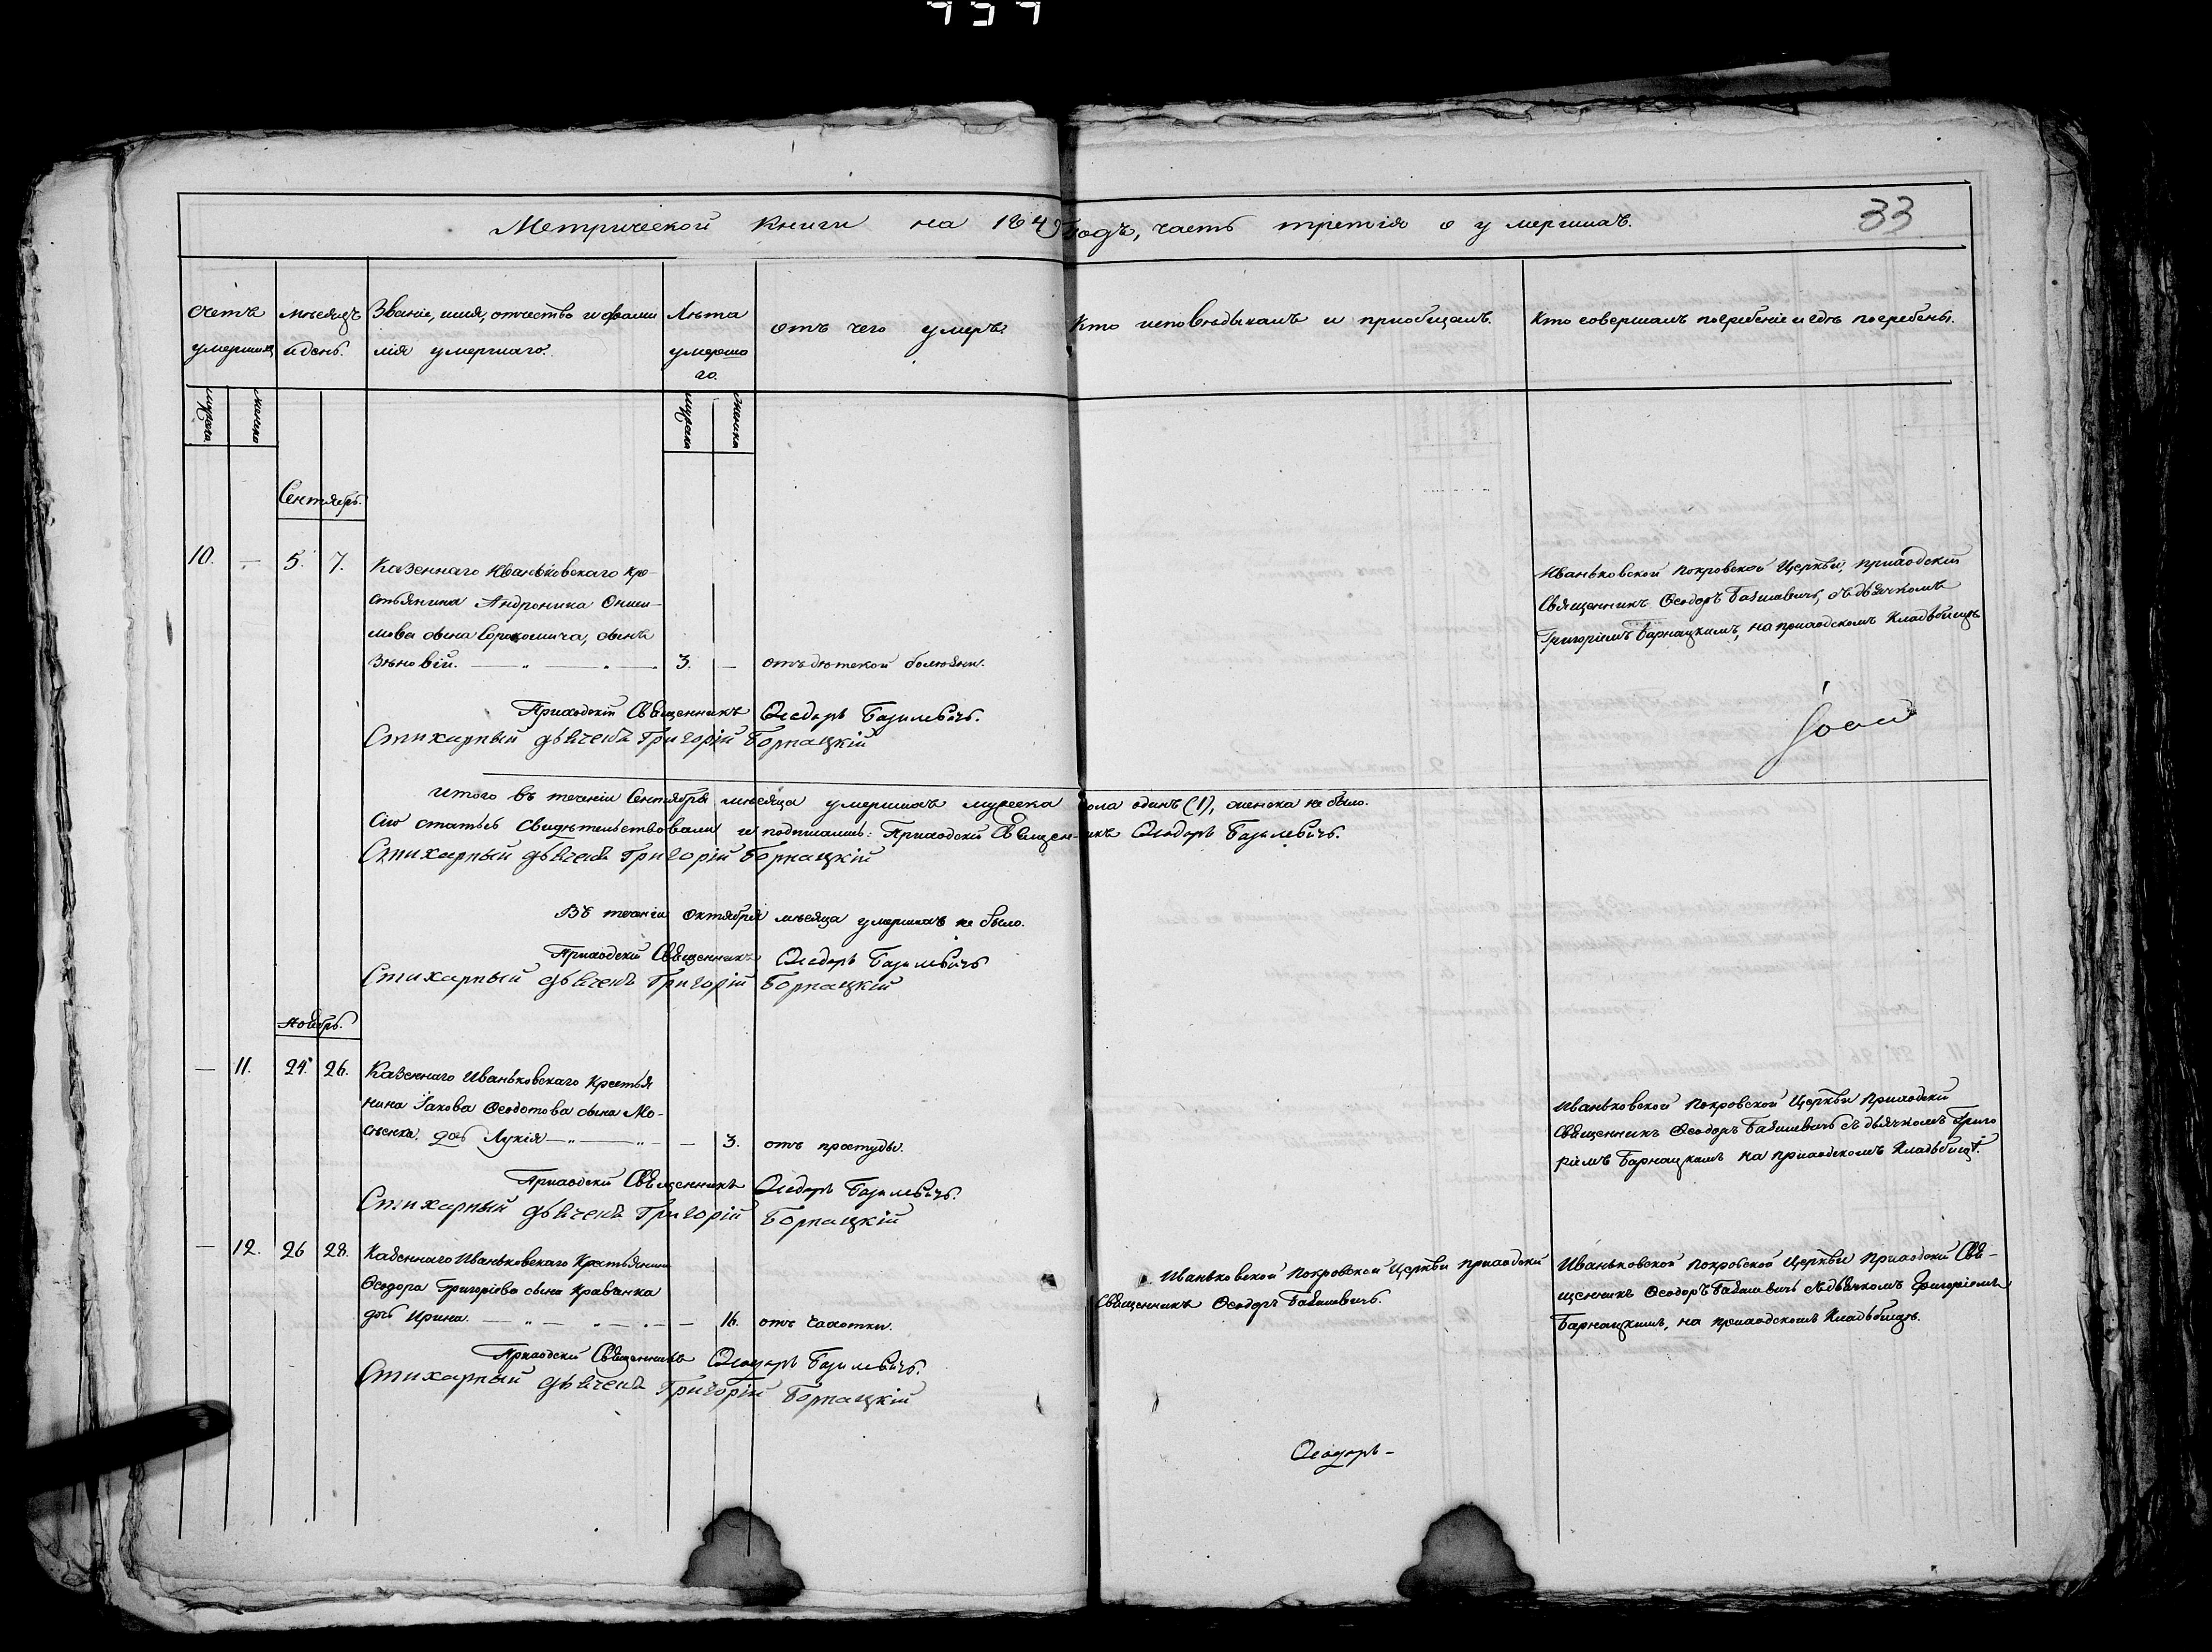 33
Метрической книги на 1849 Годъ, часть третія о умершихъ.
Счетъ умершихъ
Мѣсяцъ и день.
Званіе, имя, отчество и фамилія умершаго.
Лѣта умершаго.
отъ чего умеръ?
Кто исповѣдывалъ и пріобщалъ.
Кто совершалъ погребеніе и гдѣ погребены.
мужска
женска
мужска
женска
Сентябрь.
10. — 5. 7. Казеннаго Иваньковскаго Кре-
стьянина Андроника Ониси-
мова сына Сорокопича, сынъ
Зѣновій. — „ — „ — 3. — отъ дѣтской болѣзни.
Иваньковской Покровской Церкви, приходскій
Священникъ Ѳеодоръ Базилевичъ, съ дьячкомъ
Григоріемъ Барнацкимъ, на приходскомъ Кладбищѣ
Приходскій Священникъ Ѳеодоръ Базилевичъ.
Стихарный дьячекъ Григорій Борнацкій
Итого въ теченіи Сентября мѣсяца умершихъ мужеска пола одинъ (1), женска не было.
Сію статью свидѣтельствовали и подписались: Приходскій Священникъ Ѳеодоръ Базилевичъ.
Стихарный дьячекъ Григорій Борнацкій
Въ теченіи Октября мѣсяца умершихъ не было.
Приходскій Священникъ Ѳеодоръ Базилевичъ
Стихарный дьячекъ Григорій Борнацкій
Ноябрь.
— 11. 24. 26. Казеннаго Иваньковскаго Крестья
нина Іакова Ѳеодотова сына Мо-
дочь Лукія — „ — „ — 3. отъ простуды.
Иваньковской Покровской Церкви Приходскій
Священникъ Ѳеодоръ Базилевичъ съ дьячкомъ Григо
ріемъ Барнацкимъ на приходскомъ Кладбищѣ.
Приходскій Священникъ Ѳеодоръ Базилевичъ.
Стихарный дьячекъ Григорій Борнацкій
— 12. 26 28. Казеннаго Иваньковскаго Крестьянина
Ѳеодора Григоріева сына Кравчика
дочь Ирина. — „ — „ — 16. отъ чахотки.
Иваньковской Покровской Церкви приходскій
Священникъ Ѳеодоръ Базилевичъ.
Иваньковской Покровской Церкви Приходскій Свя-
щенникъ Ѳеодоръ Базилевичъ съ дьячкомъ Григоріемъ
Барнацкимъ, на приходскомъ Кладбищѣ.
Приходскій Священникъ Ѳеодоръ Базилевичъ.
Стихарный дьячекъ Григорій Борнацкій
Ѳеодоръ –